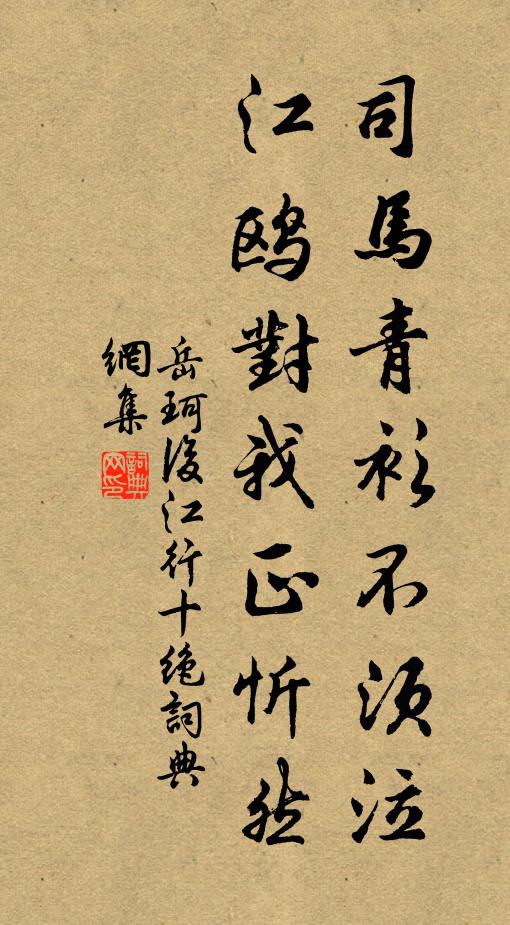 司馬青衫不須泣
江鷗對我正忻然
岳珂後江行十絶詞典
網集
詞典網印